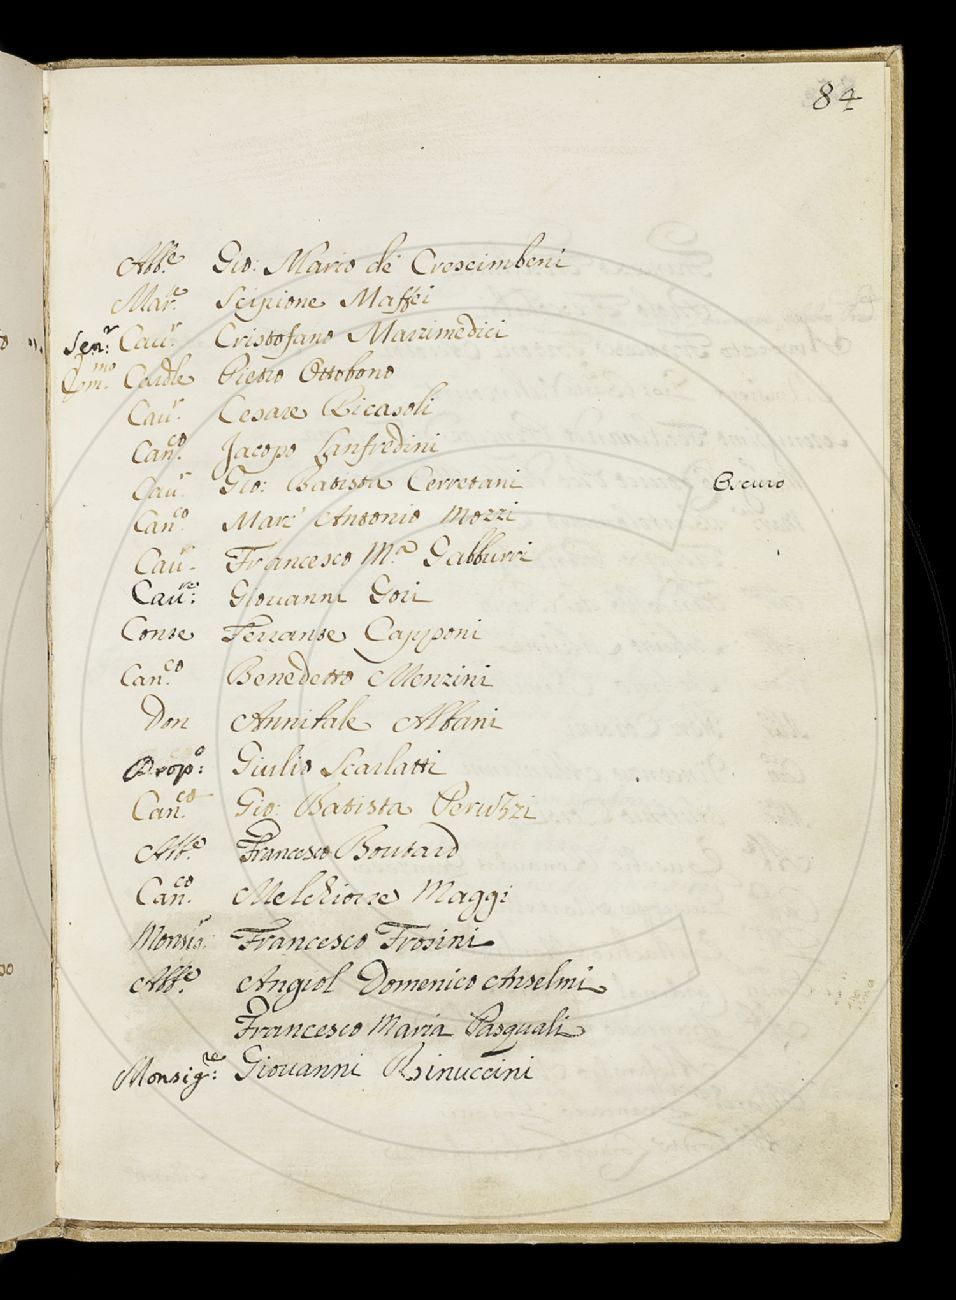 84
Abb.e Gio: Mario de' Crescimbeni
Mar.e Scipione Maffei
Sen.r Cau.r Cristofano Marzimedici
Em.mo Cardle Pietro Ottobono
Cau.r Cesare Ricasoli
Can.co Jacopo Lanfredini
Cau.r Gio: Batista Cerretani
Can.co Marc' Antonio Mozzi
Cau.r Francesco M.a Gabburri
Cau.re: Giouanni Gori
Conte Ferrante Capponi
Can.co Benedetto Menzini
Don Annibale Albani
Prop.o: Giulio Scarlatti
Can.co Gio: Batista Peruzzi
Abb.e Francesco Boutard
Can.co Melchiorre Maggi
Monsig.r Francesco Frosini
Abb.e Angiol Domenico Anselmi
Francesco Maria Pasquali
Monsig.re: Giouanni Rinuccini